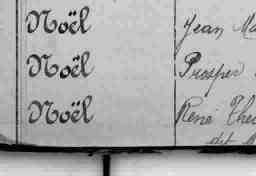 Noël Jean
Noël Prosper
Noël René